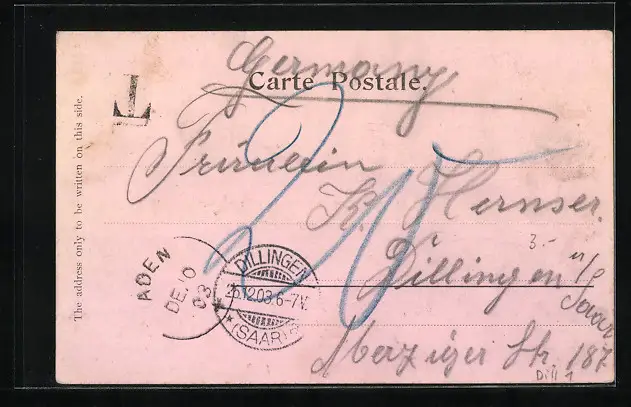 Germany
Carte Postale.
T
The address only to be written on this side.
Fräulein
K. Hernser.
20
3.-
Dillingen a/S
Saar
Merziger Str. 187
Dill 1
ADEN
DE 10
03
DILLINGEN
25.12.03.6-7V.
* (SAAR)